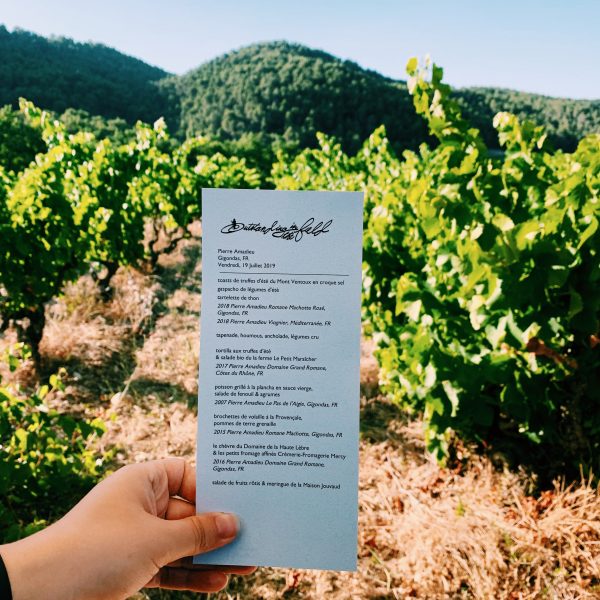 Outstanding in the field
Pierre Amadieu
Gigondas, FR
Vendredi, 19 Juillet 2019
toasts de truffes d'été du Mont Ventoux en croque sel
gaspacho de légumes d'été
tartelette de thon
2018 Pierre Amadieu Romane Machotte Rosé,
Gigondas, FR
2018 Pierre Amadieu Viognier, Méditerranée, FR
tapenade, houmous, anchoïade, légumes cru
tortilla aux truffes d'été
& salade bio de la ferme Le Petit Maraîcher
2017 Pierre Amadieu Domaine Grand Romane,
Côtes du Rhône, FR
poisson grillé à la plancha en sauce vierge,
salade de fenouil & agrumes
2007 Pierre Amadieu Le Pas de l'Aigle, Gigondas, FR
brochettes de volaille à la Provençale,
pommes de terre grenaille
2015 Pierre Amadieu Romane Machotte, Gigondas, FR
le chèvre du Domaine de la Haute Lèbre
& les petits fromage affinés Crèmerie-Fromagerie Mercy
2016 Pierre Amadieu Domaine Grand Romane,
Gigondas, FR
salade de fruits rôtis & meringue de la Maison Jouvaud